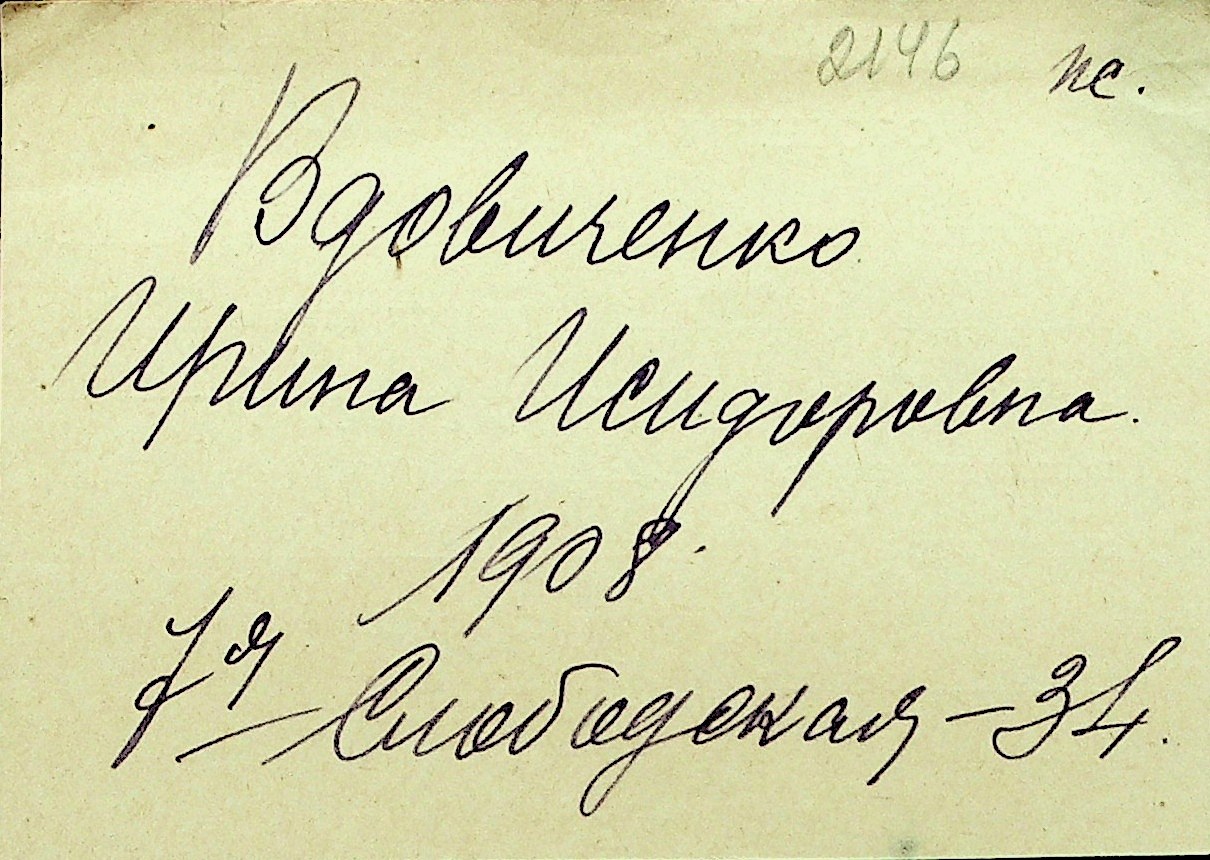 2146 пс.
Вдовиченко
Ирина Исидоровна.
1908.
7я Слободская – 34.